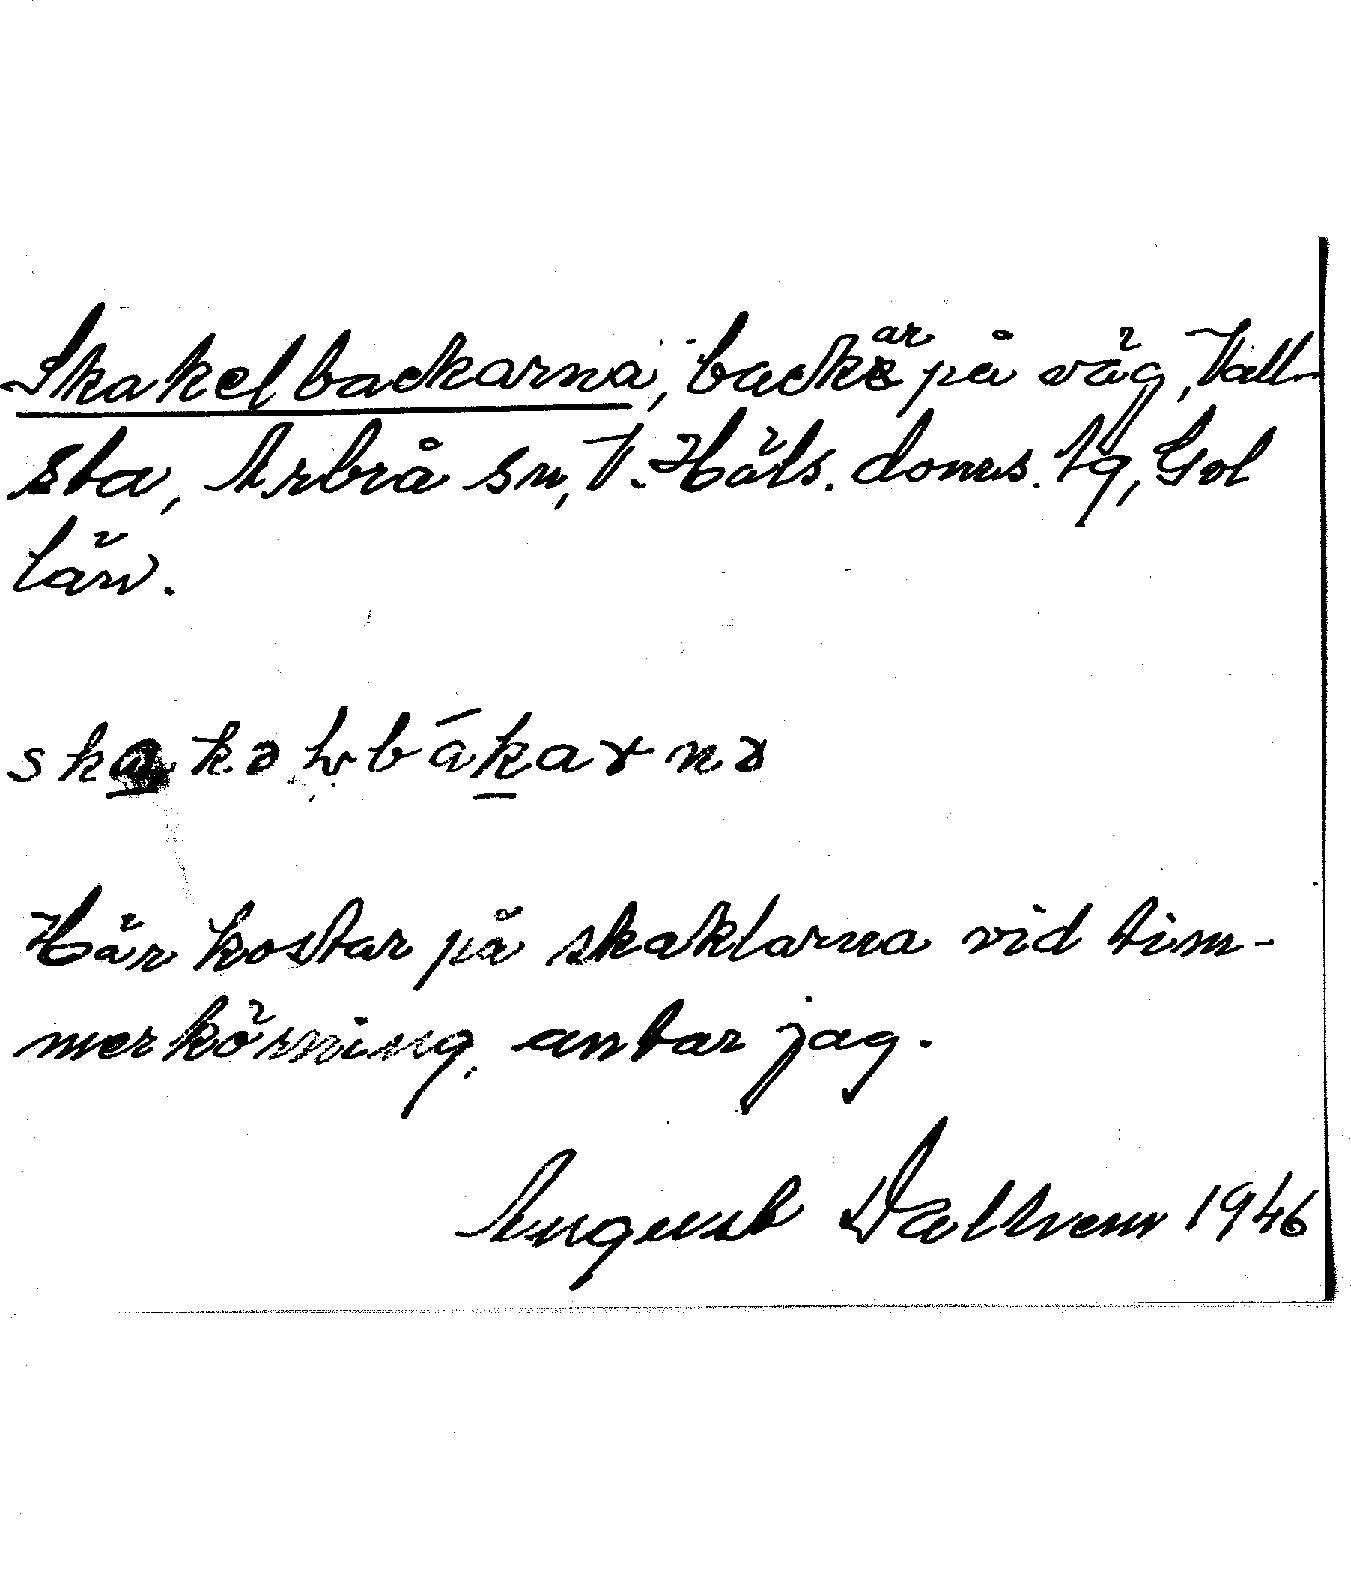 Skakelbackarna, backar på väg, Vall-
sta, Arbrå sn, V. Häls. doms. tg, Gol
län.
skakəlbákarnə
Här kostar på skaklarna vid tim-
merkörning, antar jag.
August Dalhem 1946